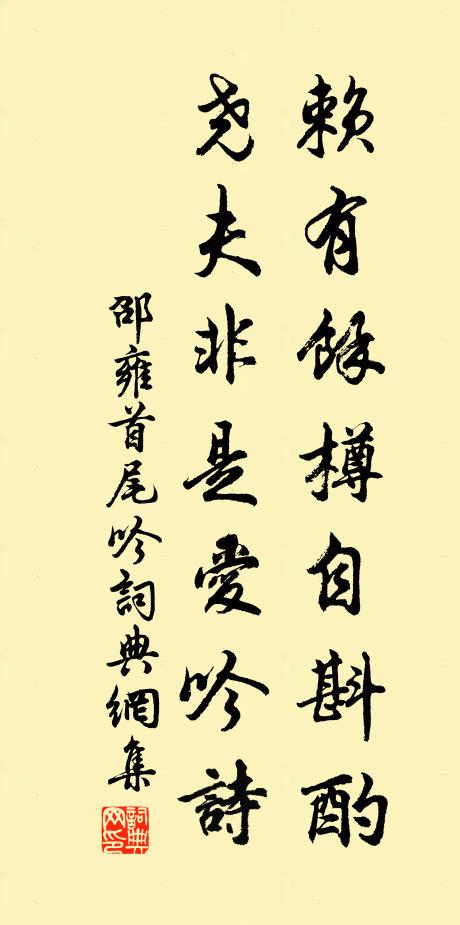 賴有餘樽自斟酌
尧夫非是愛吟詩
邵雍首尾吟詞典網集
詞典网印